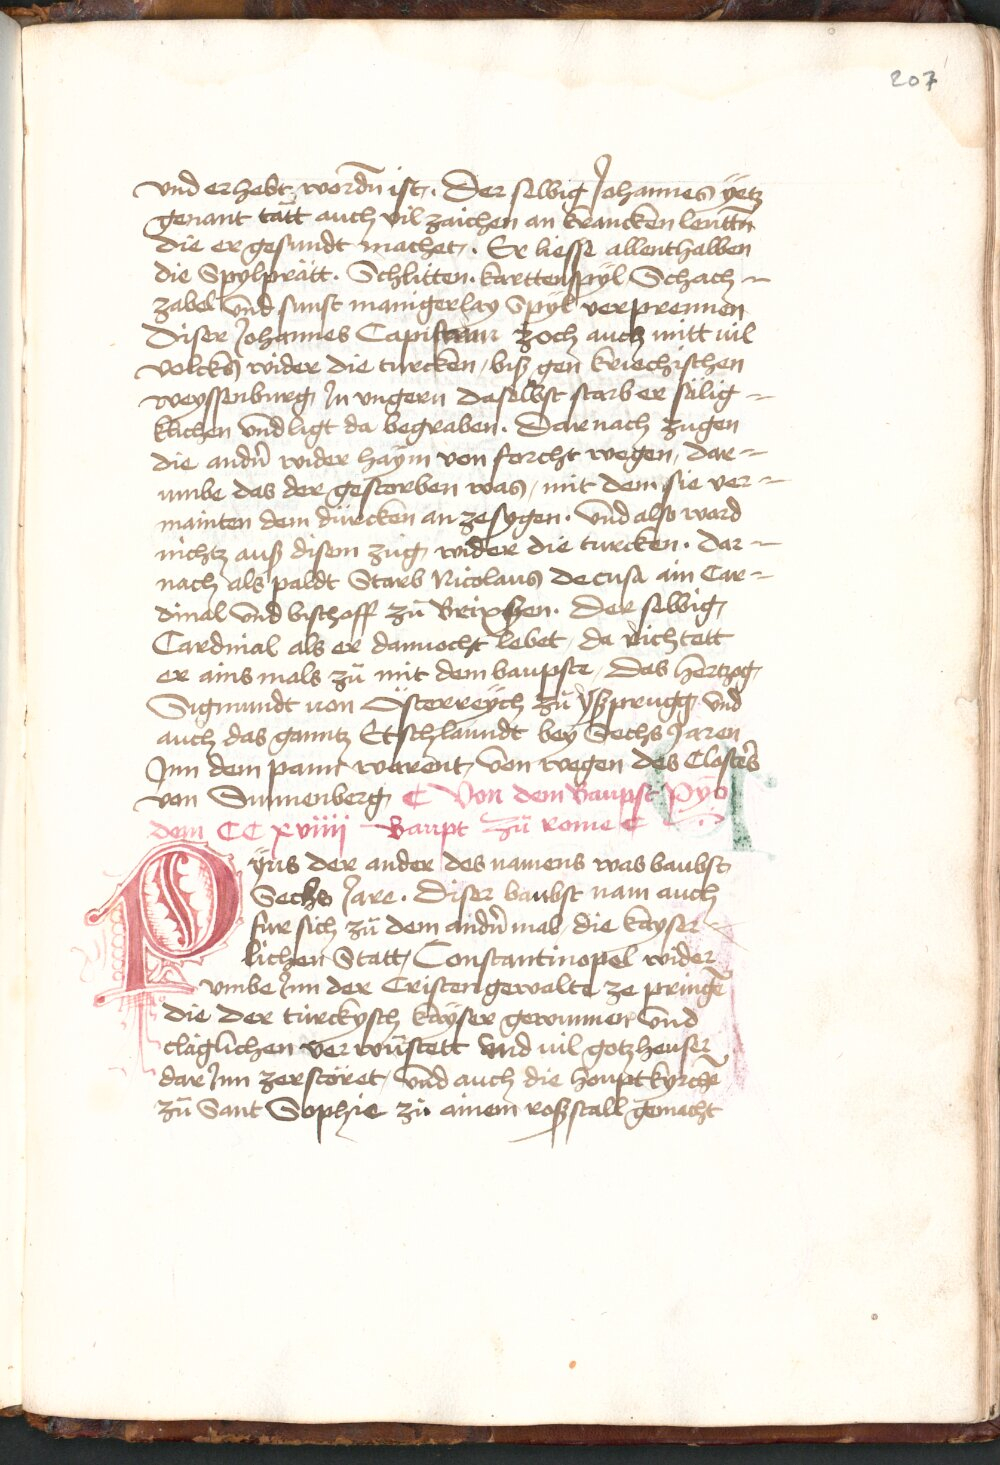 207
vnd erhebt wordñ ist. Der selbig Johannes yetz
genant tätt auch vil zaichen an kranckenn leuttñ
die er gesundt machet. Er liesse allenthalben
die Spylprätt. Schlitten. karttenspyl Schach
zabel vnd sunst manigerlay Spyl verprennen
Diser Johannes Capistran zoch auch mitt vil
volcks wider die turcken, biß gen kriechischen
weyssenburg In vngern daselbst starb er sälig
klichen vnd ligt da begraben. Darnach zugen
die andñ wider haym von forcht wegen, dar
vmbe das der gestorben was, mit dem sie ver
mainten dem dürcken an zesygen. vnd also ward
nichtz auß disem zug wider die turcken. Dar
nach als paldt Starb Nicolaus de cusa ain Car
dinal vnd bischoff zů Brixsen. Der selbig
Cardinal als er dannocht lebet, da richtett
er ains mals zů mit dem baupste, des hertzog
Sigmundt von Österreych zů yßprugg vnd
auch das ganntz Etschlanndt bey Sechs Jaren
Jnn dem pann warent, von wegen des Closters
von Sunnenberg C Von dem Baupst Pyo
dem CC xviiii Baupt zů rome C
Pyus der ander des namens was baubst
Sechs Jare. Diser baubst nam auch
fur sich zů dem andñ mal, die kayser
lichen Statt, Constantinopel wider
vmbe Jnn der Cristen gewalte ze pringẽ
die der türckysch kayser gewunnen vnd
cläglichen verwüstett vnd vil gotzheuser
dar Jnn zerstöret, vnd auch die houptkyrchẽ
zů Sant Sophie zů ainem roßstall gemacht